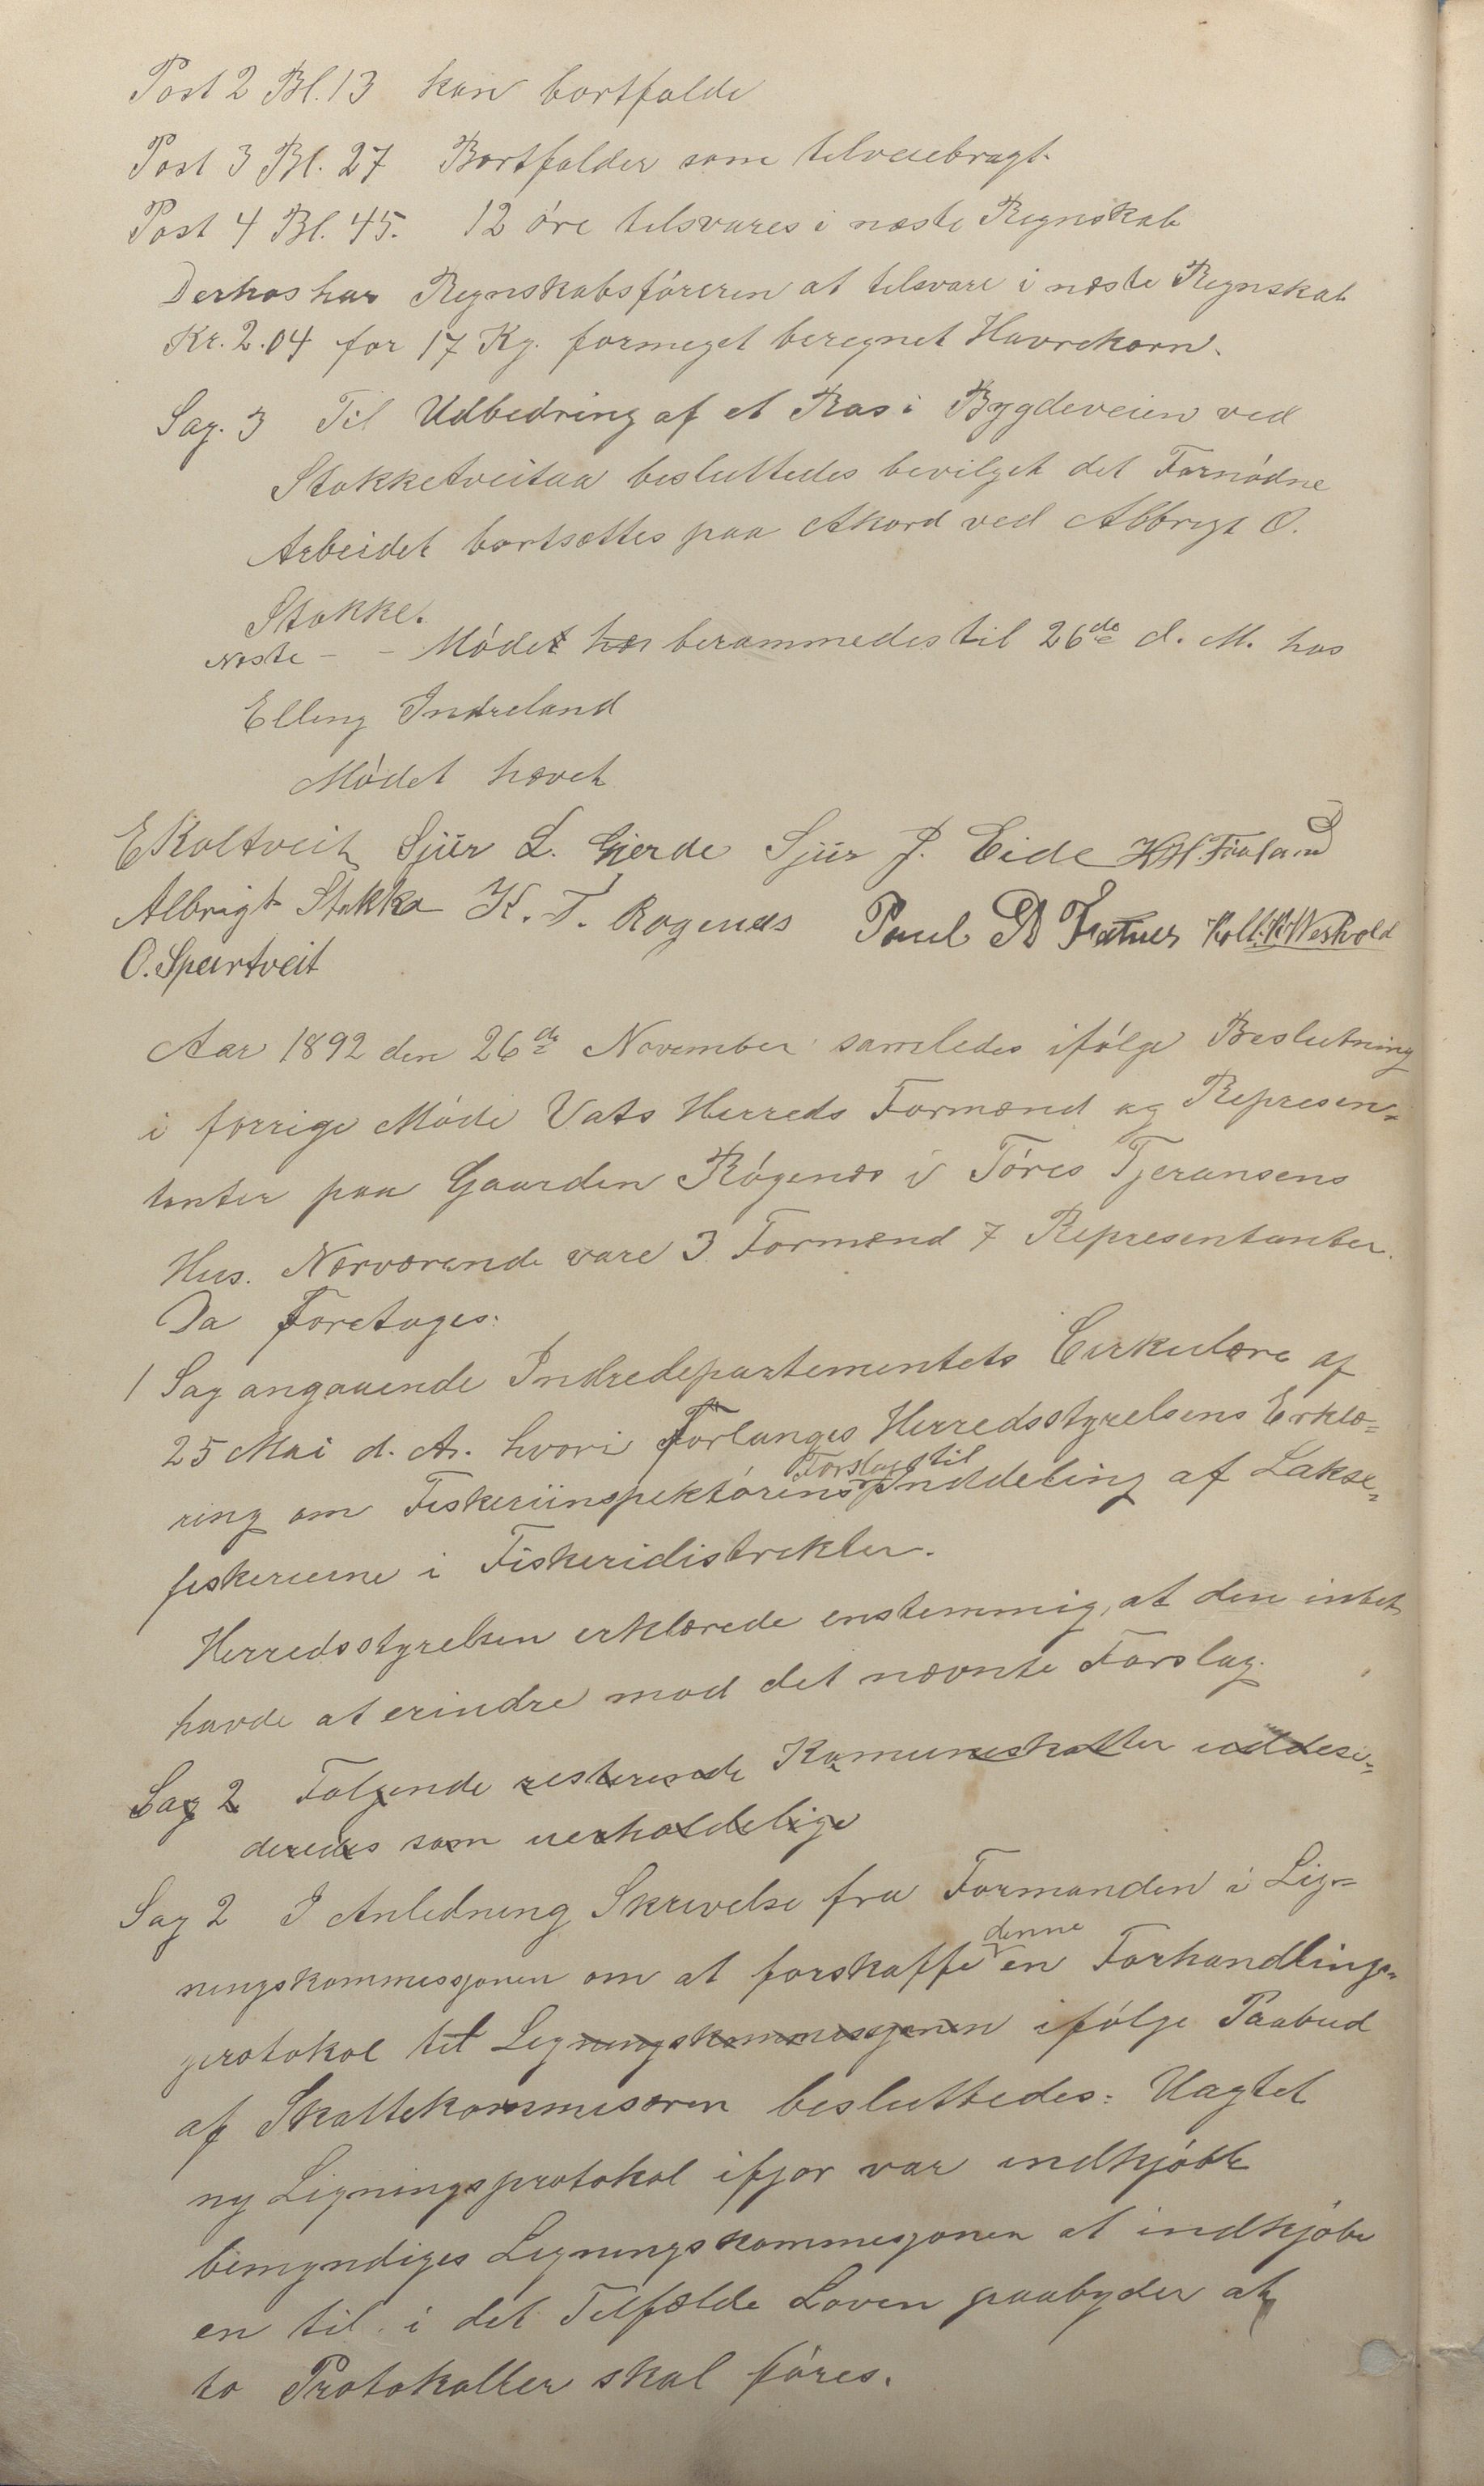 Post 2 Bl. 13 kan bortfalde
Post 3 Bl. 27 Bortfalder som tilveiebragt.
Post 4 Bl. 45. 12 óre tilsvares i næste Regnskab
Derhos har Regnskabsfóreren at tilsvare i næste Regnskab
Kr. 2.04 for 17 Kg. formeget beregnet Havrekorn.
Sag. 3 Til Udbedring af et Ras i Bygdeveien ved
Stokketveitaa besluttedes bevilget det Fornódne
Arbeidet bortsættes paa Akord ved Albrigt O.
Stokke.
Næste - - Mödet her berammedes til 26de d. M. hos
Elling Indreland
Módet hævet
E Koltveit Sjur L. Gjerde Sjur J. Eide
Albrigt Stokka K. T. Røgenes Paul
O. Spurtveit
Aar 1892 den 26de November samledes ifólge Beslutning
i forrige Móde Vats Herreds Formænd og Represen-
tanter paa Gaarden Rógenæs i Tóres Tjeransens
Hus. Nærværende vare 3 Formænd 7 Representanter.
Da Foretoges:
1 Sag angaaende Indredepartementets Cirkulære af
25 Mai d. A. hvori Forlanges Herredsstyrelsens Erklæ-
Forslag til
ring om Fiskeriinspektórens Inddeling af Lakse-
fiskerierne i Fiskeridistrikter.
Herredsstyrelsen erklærede enstemmig, at den intet
havde at erindre mod det nævnte Forslag.
Sag 2 Følgende resterende Komuneskatter uddesi-
deredes som uerholdelige
Sag 2 I Anledning Skrivelse fra Formanden i Lig-
denne
ningskommissjonen om at forskaffe en Forhandlings-
protokol til Ligningskommissjonen ifólge Paabud
af Skattekommisæren besluttedes: Uagtet
ny Ligningsprotokol ifjor var indkjóbt
bemyndiges Ligningskommisjonen at indkjóbe
en til i det Tilfælde Loven paabyder at
to Protokoller skal fóres.